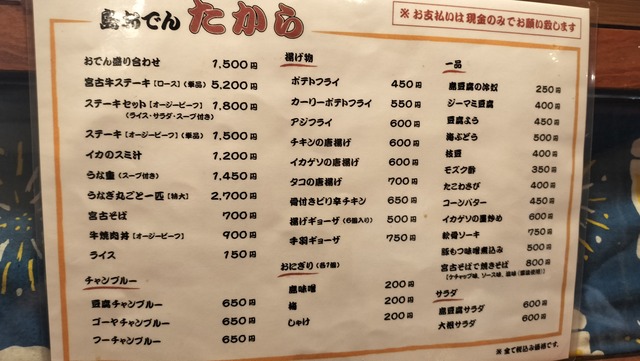 島おでん たから
※ お支払いは 現金のみでお願い致します
おでん盛り合わせ 1,500円
宮古牛ステーキ [ロース] (単品) 5,200円
ステーキセット [オージービーフ] 1,800円
(ライス・サラダ・スープ付き)
ステーキ [オージービーフ] (単品) 1,500円
イカのスミ汁 1,200円
うな重 (スープ付き) 1,450円
うなぎ丸ごと一匹 [特大] 2,700円
宮古そば 700円
牛焼肉丼 [オージービーフ] 900円
ライス 150円
チャンプルー
豆腐チャンプルー 650円
ゴーヤチャンプルー 650円
フーチャンプルー 650円
揚げ物
ポテトフライ 450円
カーリーポテトフライ 550円
アジフライ 600円
チキンの唐揚げ 600円
イカゲソの唐揚げ 600円
タコの唐揚げ 700円
骨付きピリ辛チキン 650円
揚げギョーザ (6個入り) 500円
手羽ギョーザ 750円
おにぎり (各1個)
島味噌 200円
梅 200円
しゃけ 200円
一品
島豆腐の冷奴 250円
ジーマミ豆腐 400円
豆腐よう 450円
海ぶどう 500円
枝豆 400円
モズク酢 350円
たこわさび 400円
コーンバター 450円
イカゲソの墨炒め 600円
軟骨ソーキ 750円
豚もつ味噌煮込み 500円
宮古そばで焼きそば 800円
[ケチャップ味、ソース味、塩味(醤油使用)]
サラダ
島豆腐サラダ 600円
大根サラダ 600円
※ 全て税込み価格です。